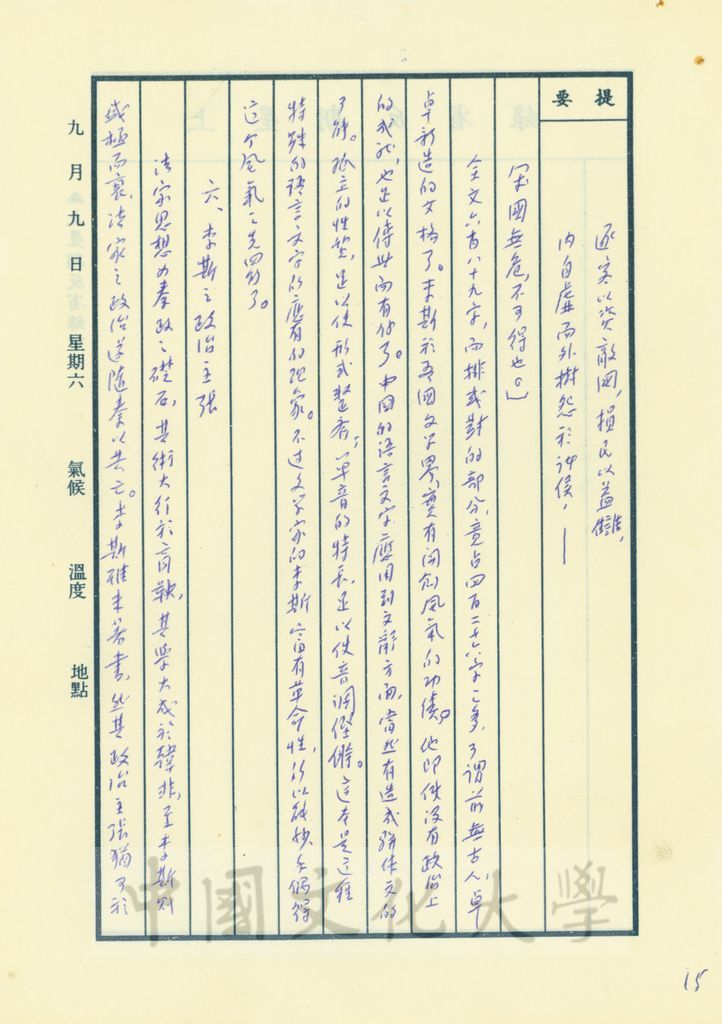 提要
逐客以資敵國，損民以益讎，
內自虛而外樹怨於諸侯，——
求國無危，不可得也。」
全文六百八十九字，而排或對的部分，竟占四百二十六字之多，可謂前無古人，卓
卓新造的文格了。李斯於吾國文學界，實有開創風氣的功績。他即使沒有政治上
的成就，也足以恃此而有份了。中國的語言文字，應用到文辭方面，當然有造成駢体文的
可能。孤立的性質，足以使形式整齊；單音的特長，足以使音調鏗鏘。這本是這種
特殊的語言文字所應有的現象。不过文學家的李斯富有革命性，所以能妙手偶得
這个風氣之先罷了。
六、李斯之政治主張
法家思想为秦政之礎石，其術大行於商鞅，其學大成於韓非，至李斯則
盛極而衰，法家之政治遂隨秦以共亡。李斯雖未著書，然其政治主張猶可於
九月九日 星期六 氣候 溫度 地點
中國文化大學
15